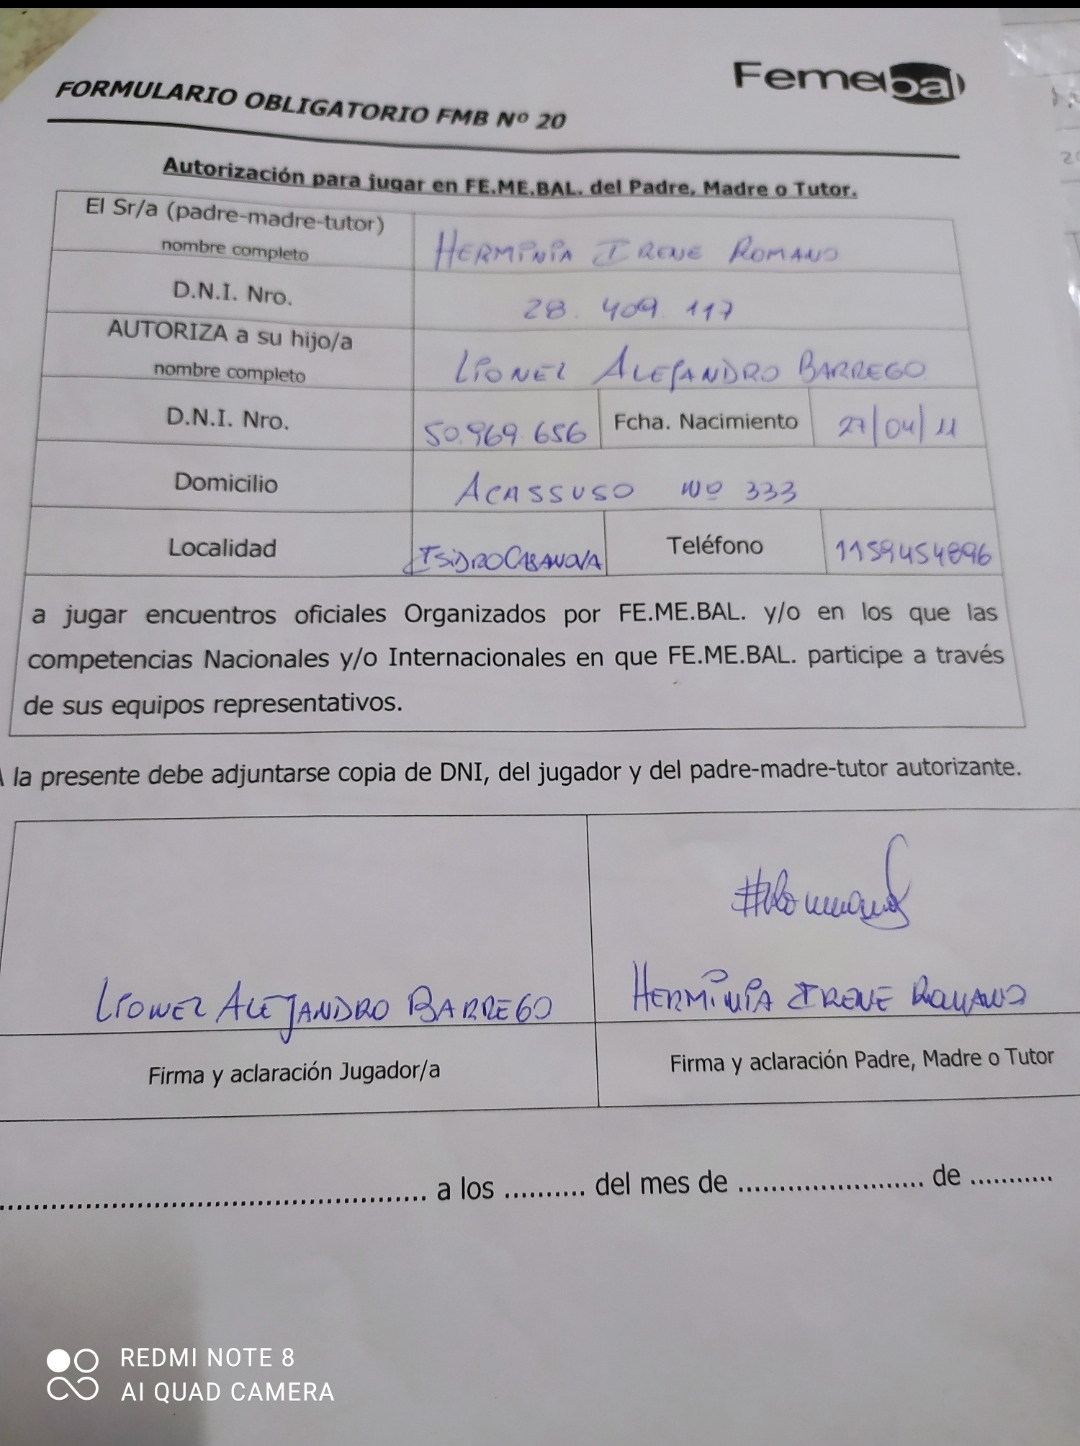 Femebal
FORMULARIO OBLIGATORIO FMB Nº 20
Autorización para jugar en FE.ME.BAL. del Padre, Madre o Tutor.
El Sr/a (padre-madre-tutor)
nombre completo
HERMINIA IRENE ROMANO
D.N.I. Nro.
28.409.117
AUTORIZA a su hijo/a
nombre completo
LIONEL ALEJANDRO BARREGO
D.N.I. Nro.
50.969.656
Fcha. Nacimiento
27/04/11
Domicilio
ACASSUSO Nº 333
Localidad
ISIDRO CASANOVA
Teléfono
1159454896
a jugar encuentros oficiales Organizados por FE.ME.BAL. y/o en los que las
competencias Nacionales y/o Internacionales en que FE.ME.BAL. participe a través
de sus equipos representativos.
A la presente debe adjuntarse copia de DNI, del jugador y del padre-madre-tutor autorizante.
LIONEL ALEJANDRO BARREGO
HERMINIA IRENE ROMANO
Firma y aclaración Jugador/a
Firma y aclaración Padre, Madre o Tutor
.................................................. a los .......... del mes de ...................... de ..........
REDMI NOTE 8
AI QUAD CAMERA